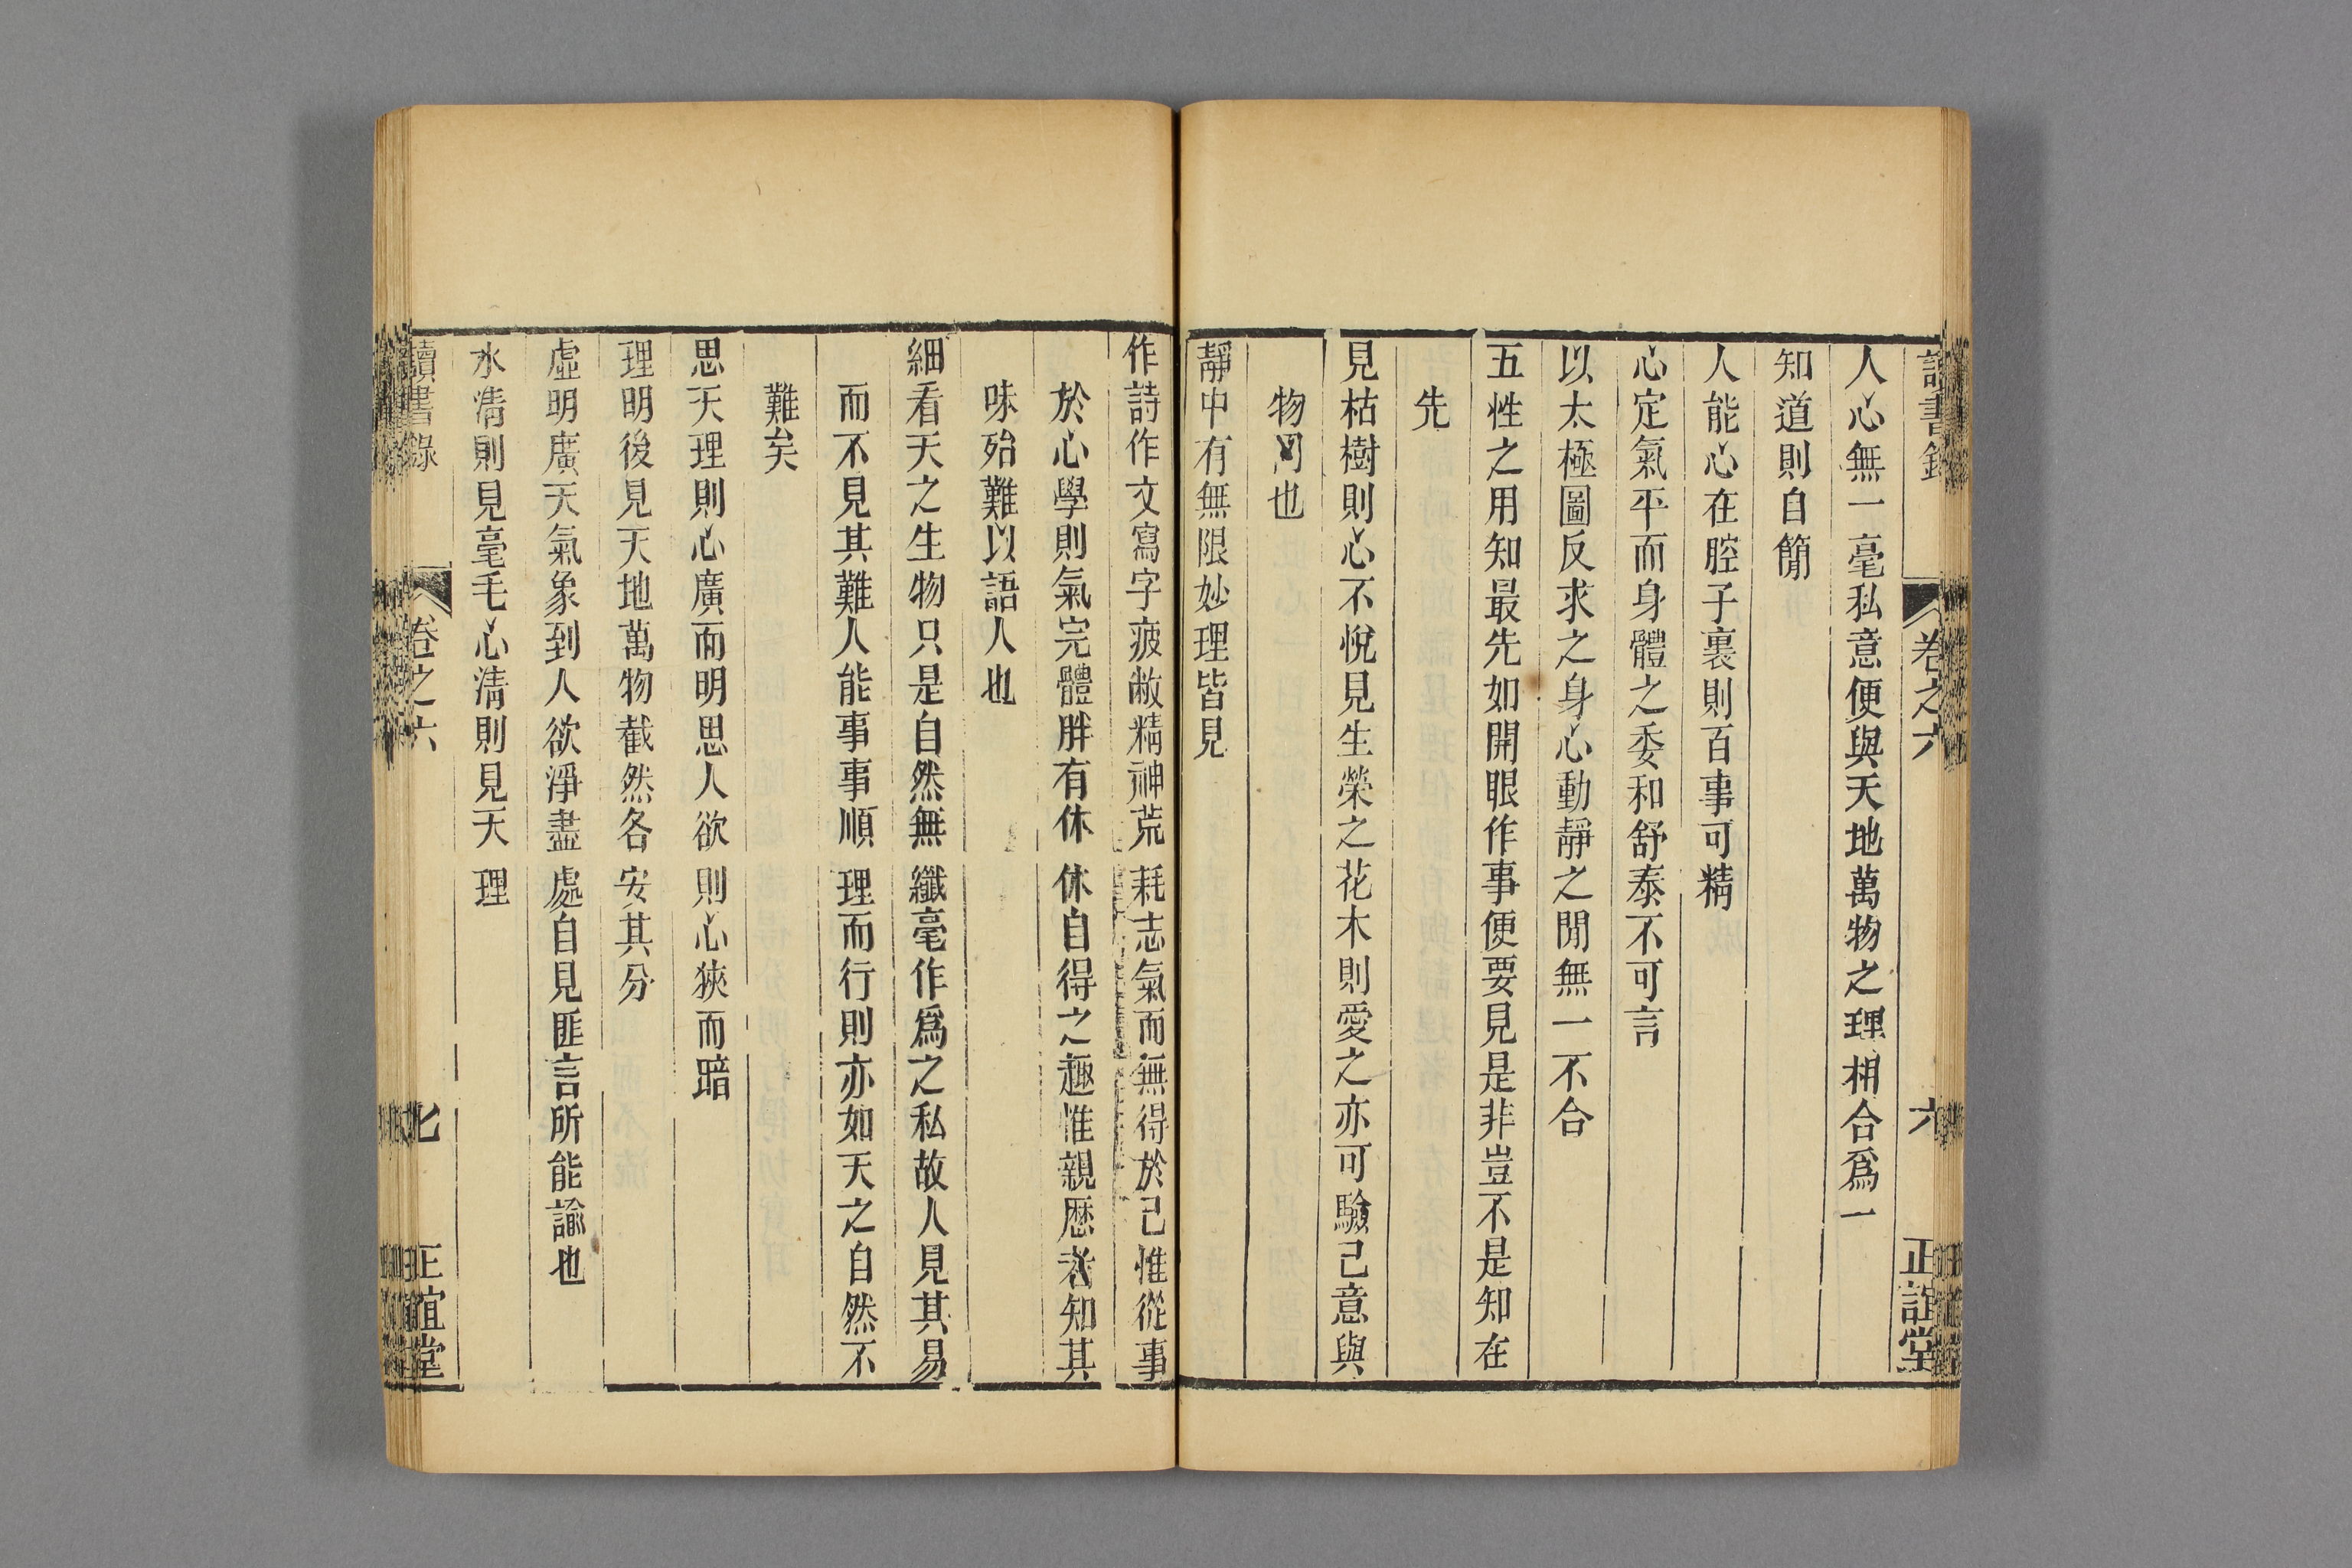 讀書錄 卷之六 六 正誼堂
人心無一毫私意便與天地萬物之理相合爲一
知道則自簡
人能心在腔子裏則百事可精
心定氣平而身體之委和舒泰不可言
以太極圖反求之身心動靜之閒無一不合
五性之用知最先如開眼作事便要見是非豈不是知在
先
見枯樹則心不悅見生榮之花木則愛之亦可驗己意與
物同也
靜中有無限妙理皆見
作詩作文寫字疲敝精神荒耗志氣而無得於己惟從事
於心學則氣完體胖有休休自得之趣惟親歷者知其
味殆難以語人也
細看天之生物只是自然無纖毫作爲之私故人見其易
而不見其難人能事事順理而行則亦如天之自然不
難矣
思天理則心廣而明思人欲則心狹而暗
理明後見天地萬物截然各安其分
虛明廣天氣象到人欲淨盡處自見匪言所能諭也
水淸則見毫毛心淸則見天理
讀書錄 卷之六 七 正誼堂